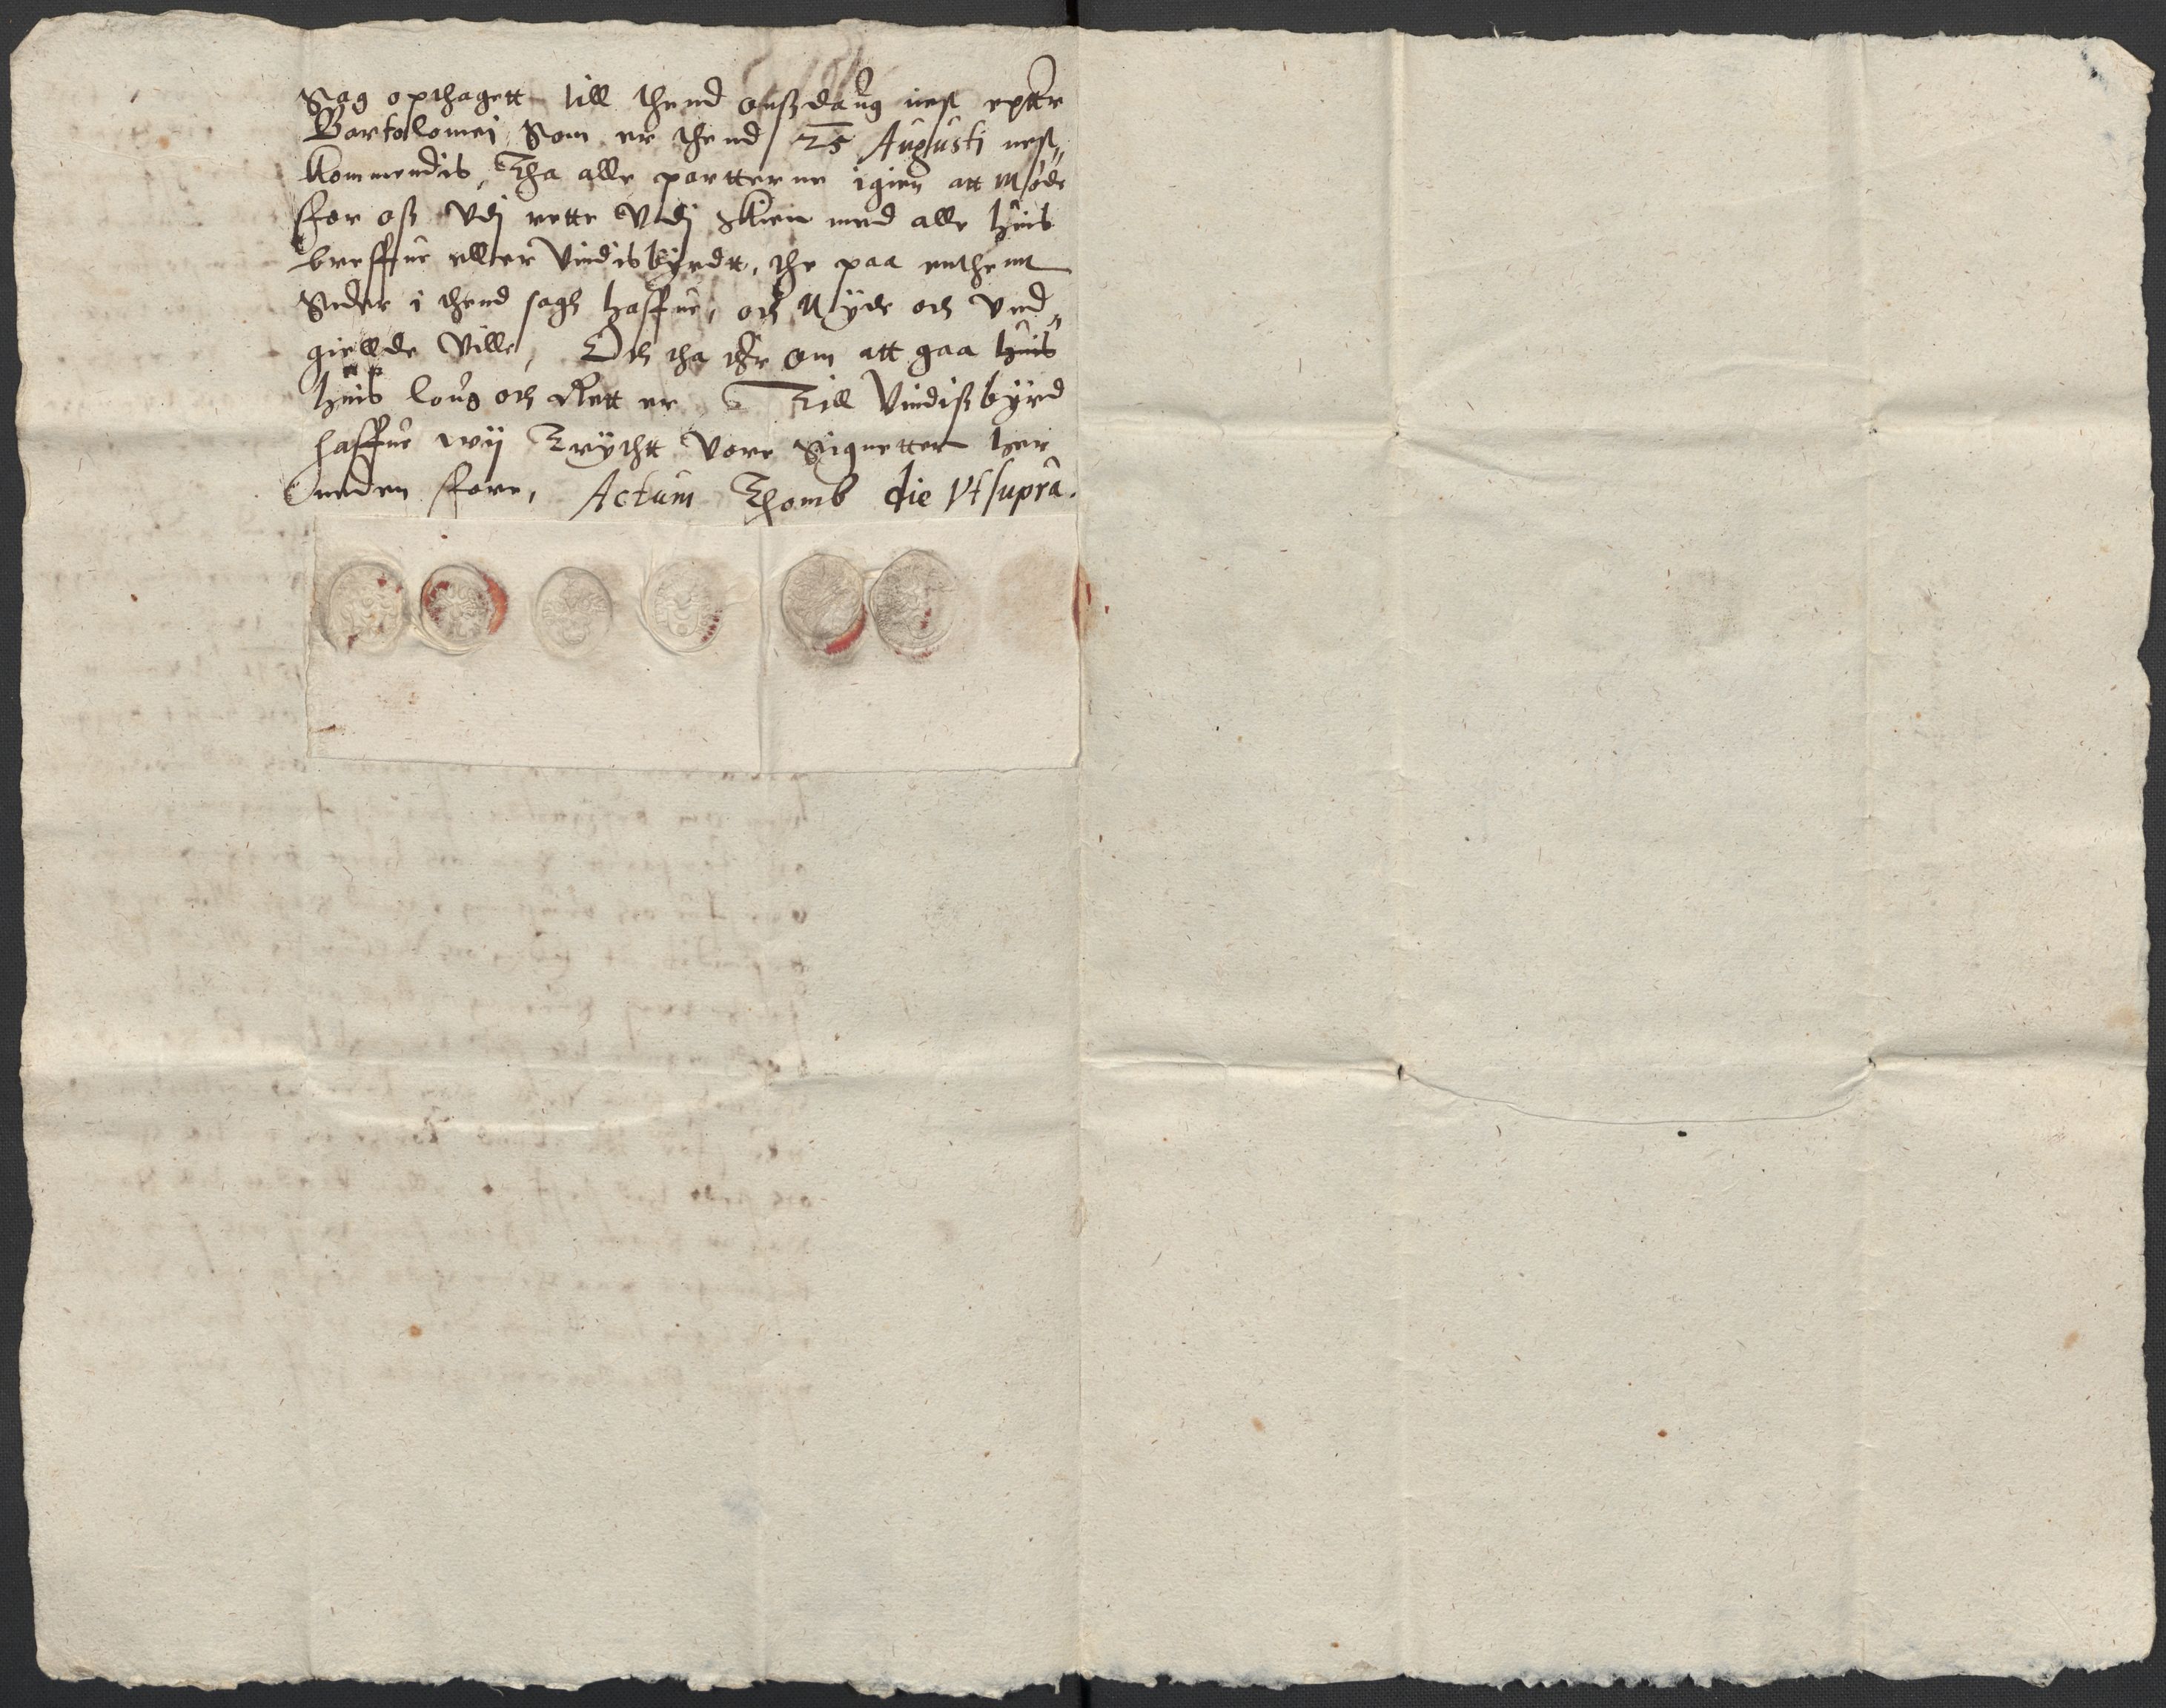 Sag opthagett till thend onßdaug nest epter
Bartolomej Som er thend 25 Augusti nest„
kommendis, Tha alle partterne igien att Møde
ffor oß Vdj rette Vdj Skien med alle huis
breffue eller Vindisbyrdt, the paa entthenn
Sider i thend sagh haffue, och Nÿde och Vnd„
giellde Ville, Och tha ther om att gaa huis
huis loug och Rett er Till Vindißbÿrd
haffue wij Trÿchtt Vore Signetter her
neden ffore, Actum Thomb die Vt supra.